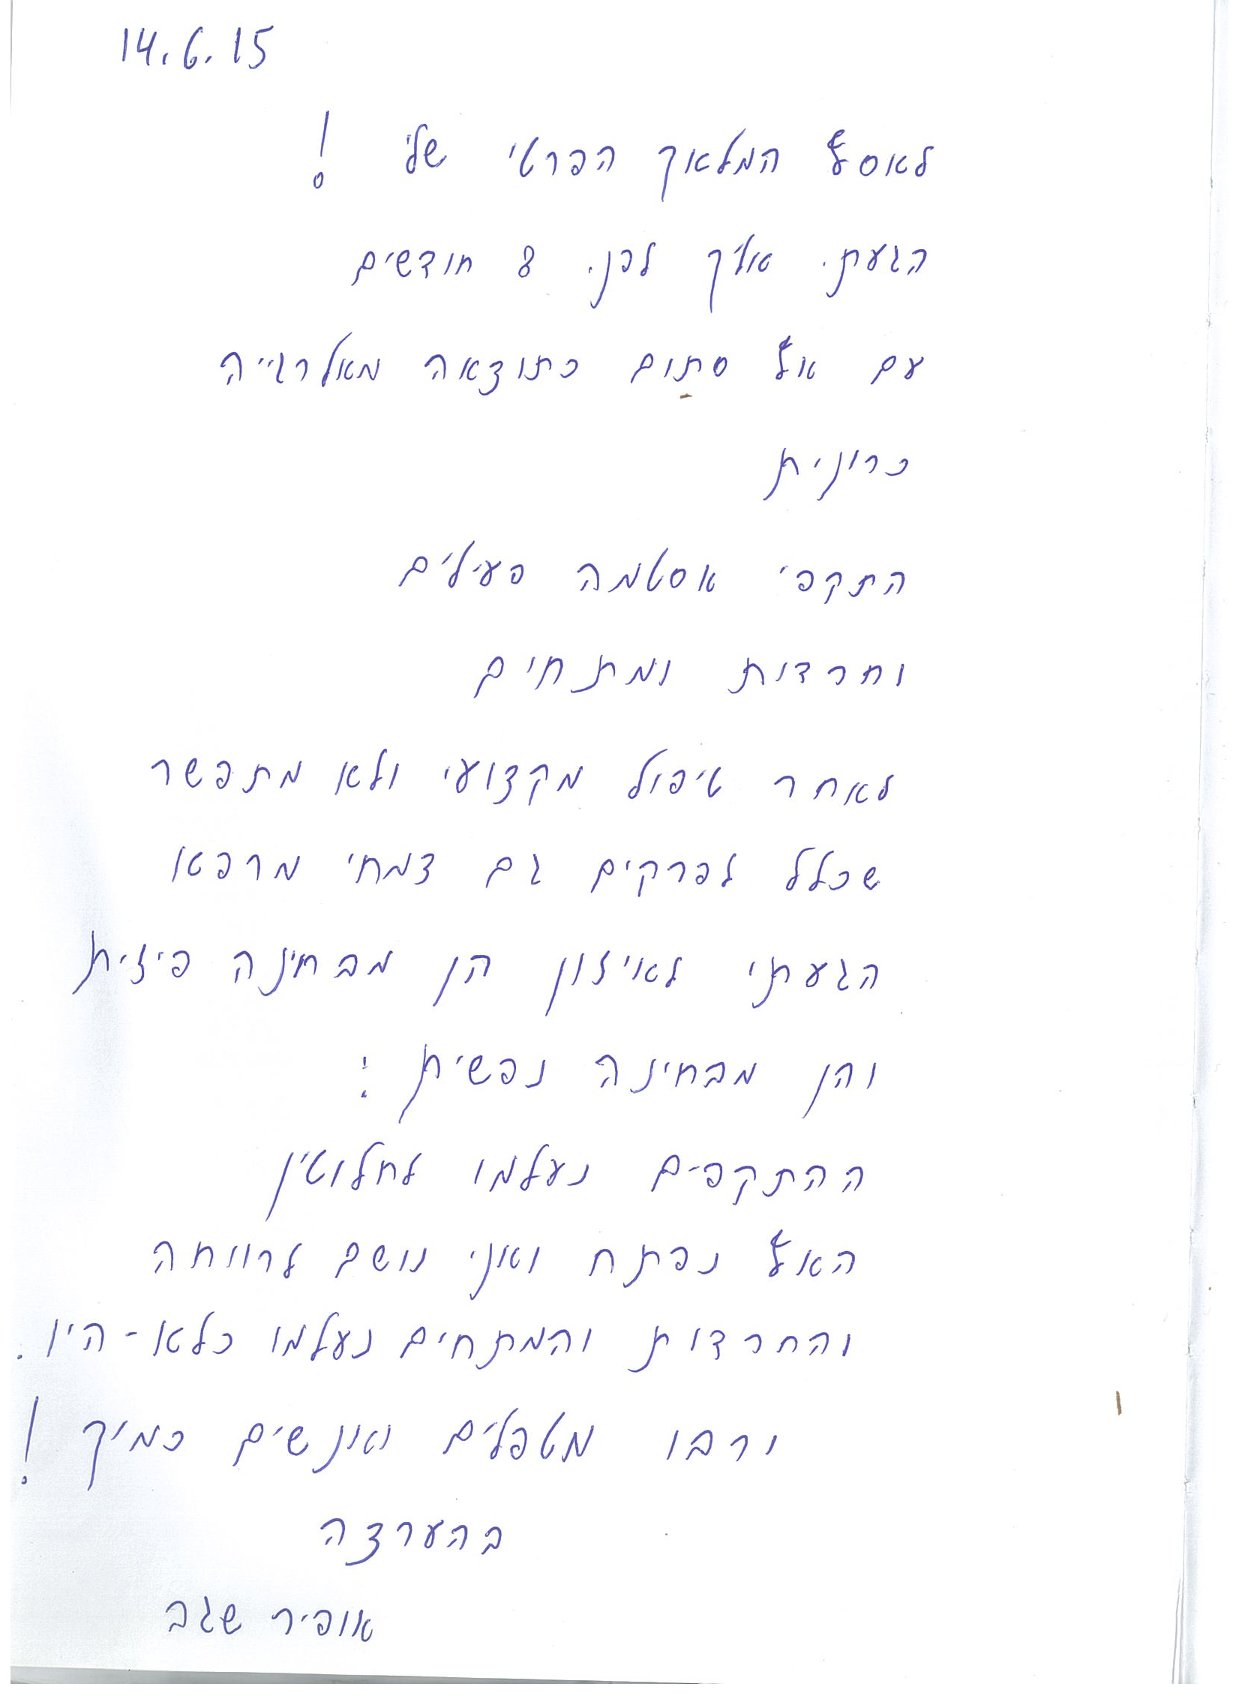 14.6.15
לאסף המלאך הפרטי שלי !
הגעתי אליך לפני 8 חודשים
עם אף סתום כתוצאה מאלרגייה
כרונית
התקפי אסטמה פעילים
וחרדות ומתחים
לאחר טיפול מקצועי ולא מתפשר
שכלל לפרקים גם צמחי מרפא
הגעתי לאיזון הן מבחינה פיזית
והן מבחינה נפשית :
ההתקפים נעלמו לחלוטין
האף נפתח ואני נושם לרווחה
והחרדות והמתחים נעלמו כלא-היו .
ירבו מטפלים ואנשים כמיך !
בהערצה
אופיר שגב